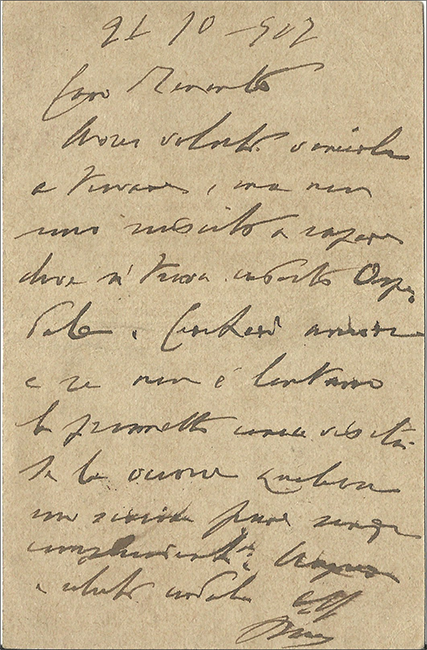 21 10 - 907
Caro
Avrei voluto venirla
a trovare, ma non
sono riuscito a sapere
dove si trova codesto Ospe
dale. Cercherò ancora
e se non è lontano
le prometto una visita.
Se le occorre qualcosa
mi scriva pure senza
complimenti.
e saluti cordiali
aff